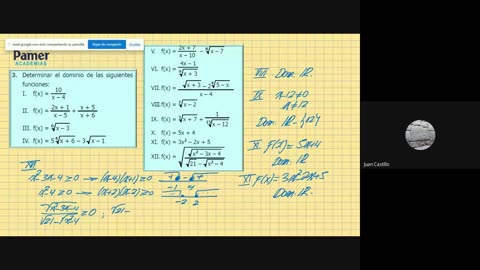 meet.google.com está compartiendo tu pantalla.
Dejar de compartir
Ocultar
Pamer
ACADEMIAS
3. Determinar el dominio de las siguientes funciones:
I. f(x) = 10/(x − 4)
II. f(x) = (2x + 1)/(x − 5) + (x + 5)/(x + 6)
III. f(x) = √(x − 3)
IV. f(x) = 5 √(x + 6) − 3 √(x − 1)
V. f(x) = (2x + 7)/(x − 10) − √(x − 7)
VI. f(x) = (4x − 1)/√(x + 3)
VII. f(x) =
(√(x + 3) − 2 √(5 − x))/(x − 4)
VIII. f(x) = √(x − 2)
IX. f(x) = √(x + 7) + 1/√(x − 12)
X. f(x) = 5x + 4
XI. f(x) = 3x² − 2x + 5
XII. f(x) =
VIII Dom: ℝ.
IX x-12≠0
x≠12
Dom: ℝ-{12}
X f(x)=5x+4
Dom: ℝ
XI f(x)=3x²-2x+5
Dom: ℝ.
XII
x²-3x-4≥0 → (x-4)(x+1)≥0
-1 4
x²-4≥0 → (x+2)(x-2)≥0
-2 2
≥0 ; √21-
Juan Castillo